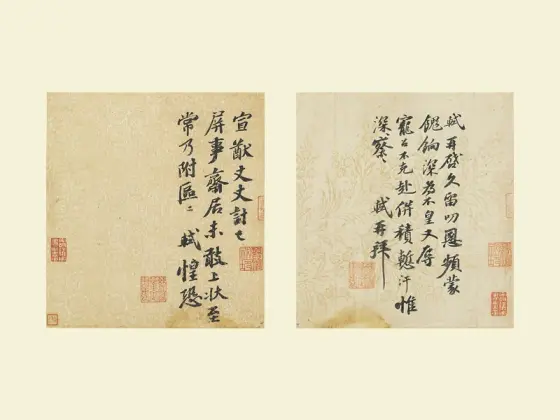 軾再啓久留叨恩頻蒙
餽餉深為不皇又辱
寵召不克赴併積慙汗惟
深察 軾再拜
宣猷丈丈計已
屏事齋居未敢上狀至
常乃附區〻軾惶恐